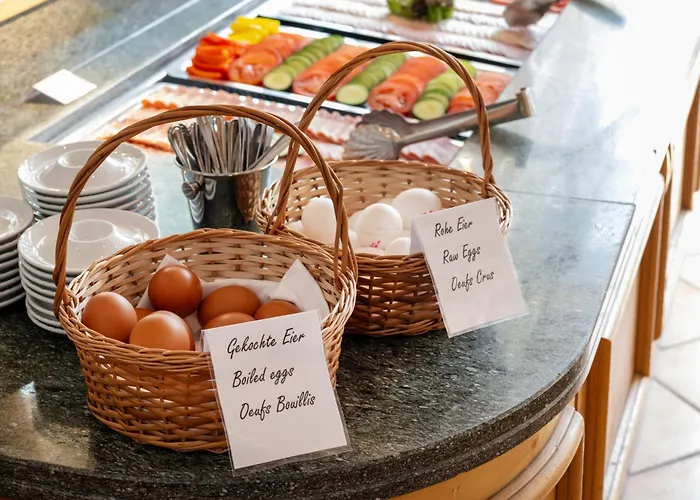 Gekochte Eier
Boiled eggs
Oeufs Bouillis
Rohe Eier
Raw Eggs
Oeufs Crus